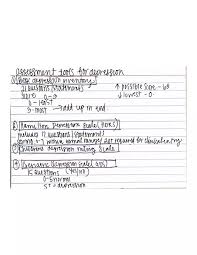 assessment tools for depression
① Beck depression inventory
21 questions/statements
↑ possible score - 63
0-3
↓ lowest - 0
0 - least
3 - most → add up in end
② Hamilton Depression Scale (HDRS)
includes 17 questions/statements
scoring 0-7 within normal ranges
required for clinical entry
③ Childrens depression rating scale
④ Geriatric Depression Scale (GDS)
15 questions (yes/no)
0-5 normal
5↑ = depression